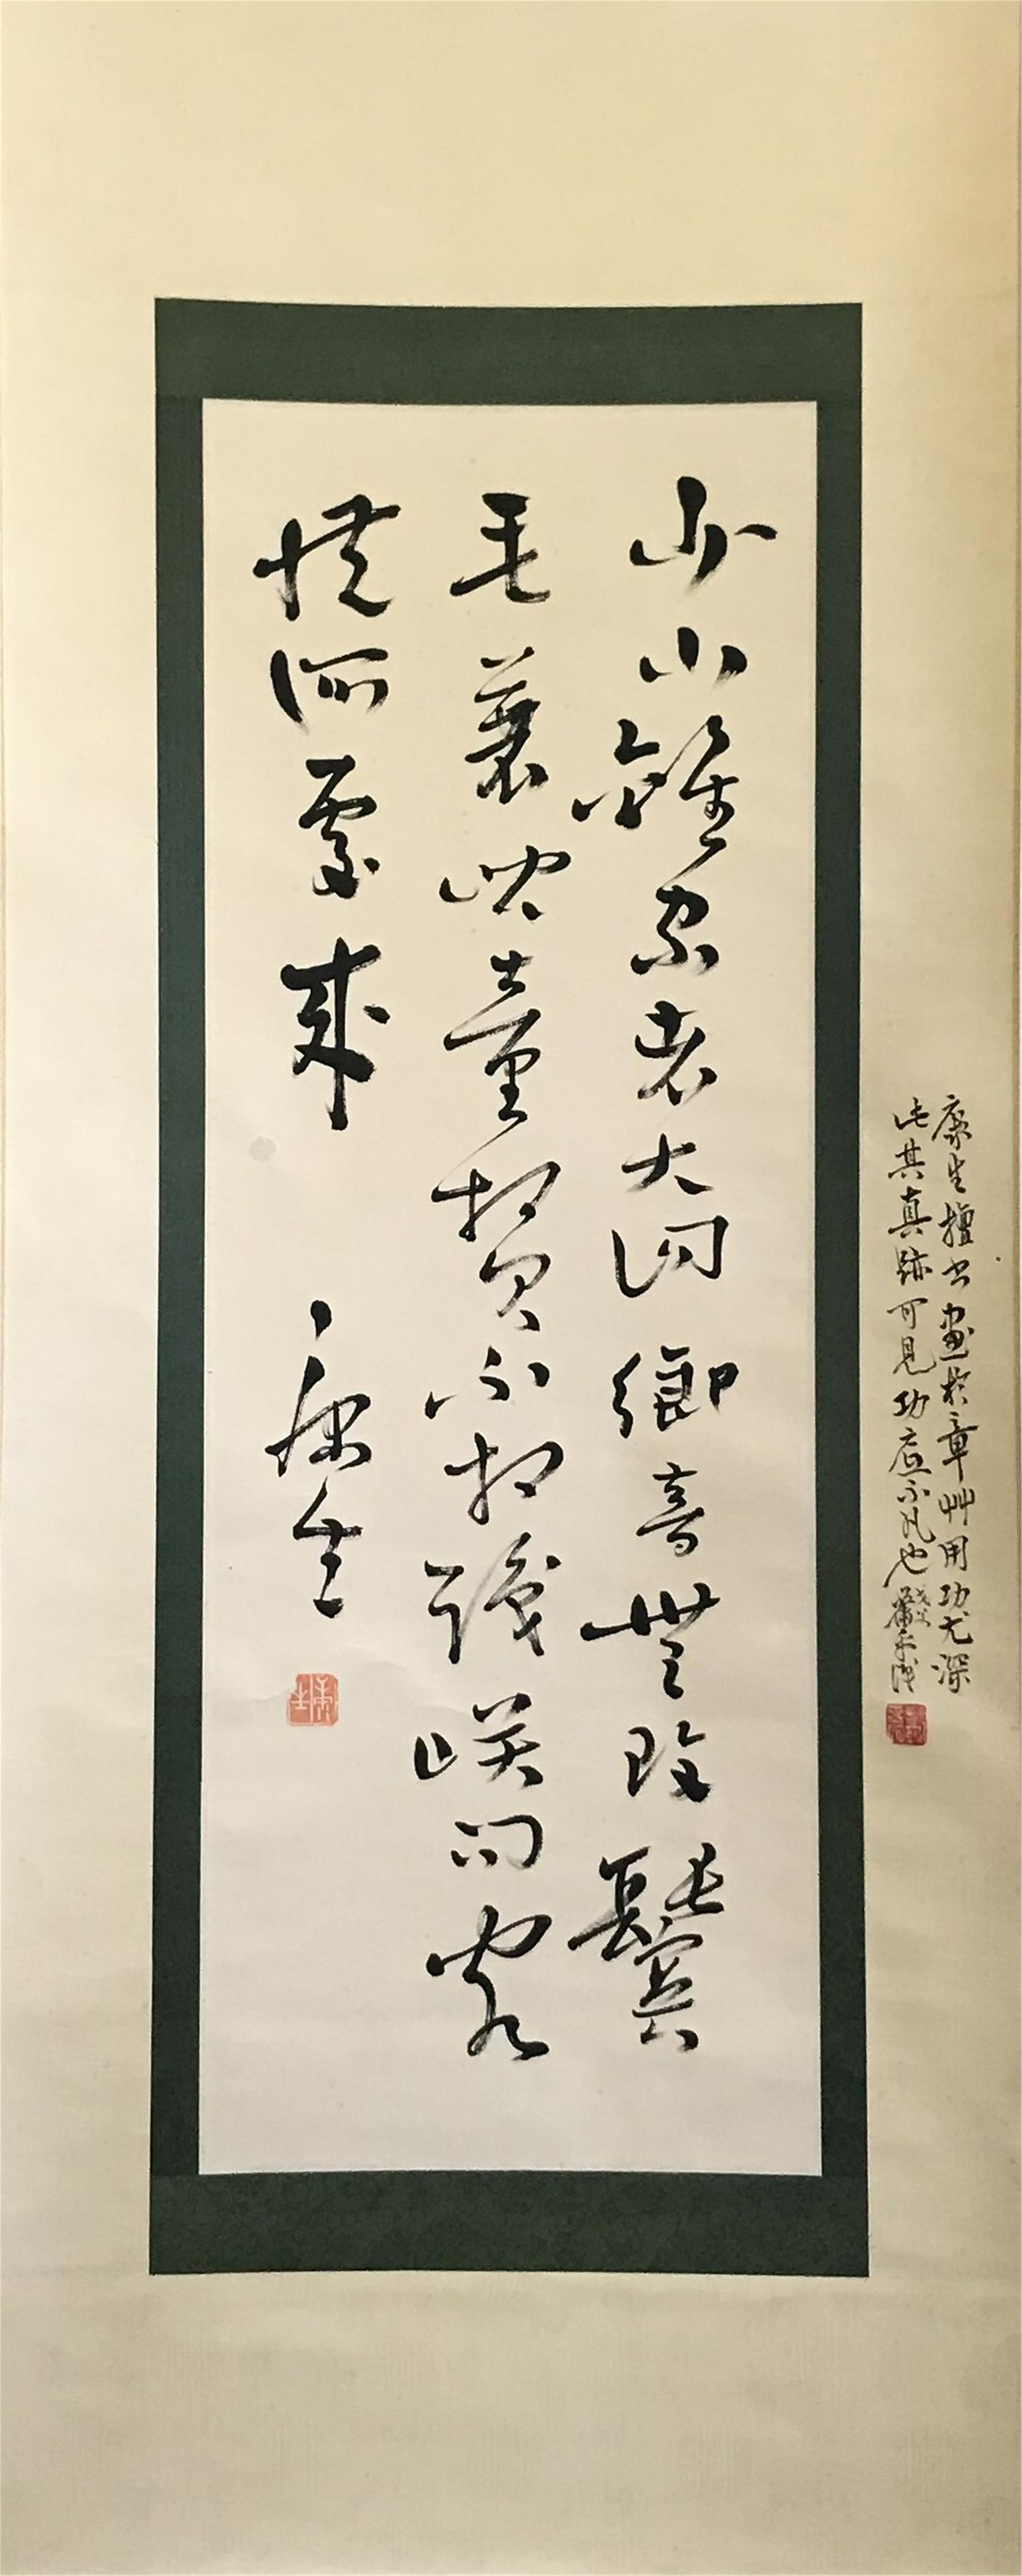 少小離家老大迴鄉音無改鬢
毛衰兒童相見不相識咲問客
從何處來 康生
康生擅書畫於章艸用功尤深
此其真跡可見功底不凡也